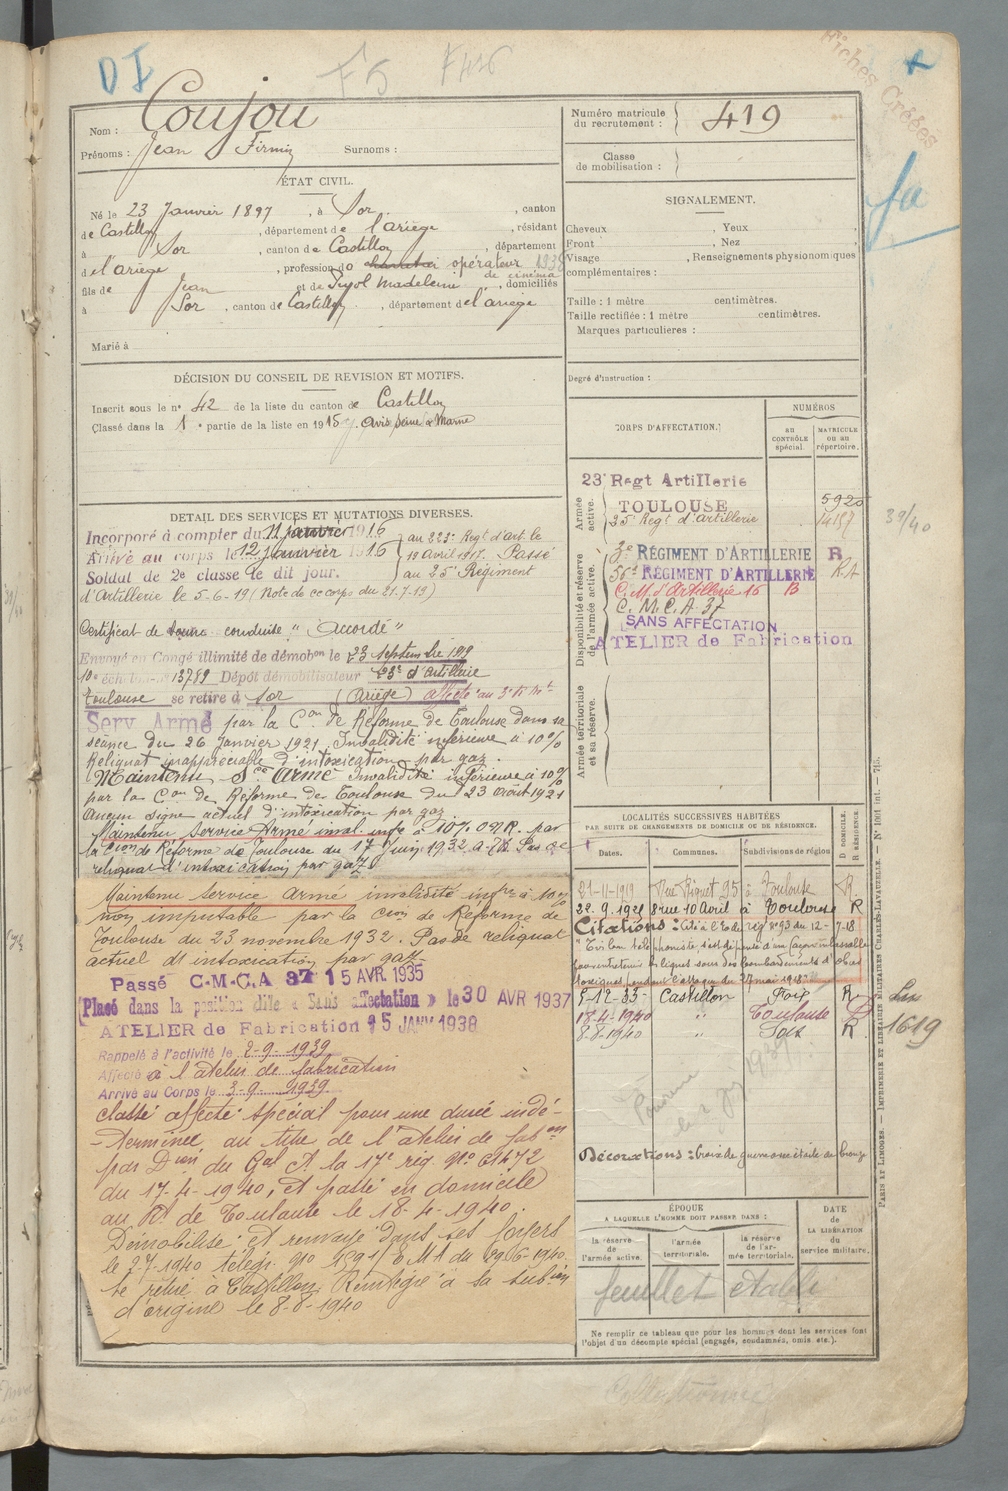 D I
F5 F426
Fiches Créées
Nom : Coujou
Prénoms : Jean Firmin Surnoms :
Numéro matricule du recrutement : 419
Classe de mobilisation :
ÉTAT CIVIL.
Né le 23 Janvier 1897, à Sor, canton
de Castillon, département de l'ariège, résidant
à Sor, canton de Castillon, département
de l'ariège, profession do opérateur 1938
de cinéma
fils de Jean et de Pujol Madeleine, domiciliés
à Sor, canton de Castillon, département de l'ariège
Marié à
SIGNALEMENT.
Cheveux , Yeux
Front , Nez
Visage , Renseignements physionomiques
complémentaires :
Taille : 1 mètre centimètres.
Taille rectifiée : 1 mètre centimètres.
Marques particulières :
Degré d'instruction :
DÉCISION DU CONSEIL DE REVISION ET MOTIFS.
Inscrit sous le n° 42 de la liste du canton de Castillon
Classé dans la 1e partie de la liste en 1915. Avis Seine & Marne
DETAIL DES SERVICES ET MUTATIONS DIVERSES.
Incorporé à compter du 11 janvier 1916
Arrivé au corps le 12 janvier 1916
Soldat de 2e classe le dit jour.
au 223e Regt d'art. le
19 avril 1917. Passé
au 25e Régiment
d'Artillerie le 5-6-19 (Note de ce corps du 21-7-19)
Certificat de bonne conduite "Accordé"
Envoyé en Congé illimité de démobon le 23 septembre 1919
10e échelon n° 13789 Dépôt démobilisateur 23e d'Artillerie
Toulouse se retire à Sor (Ariège) affecté au 3e
Serv Armé par la Con de Réforme de Toulouse dans sa
séance du 26 Janvier 1921. Invalidité inférieure à 10%
Reliquat inappréciable d'intoxication par gaz.
Maintenu Sce Armé Invalidité inférieure à 10%
par la Con de Réforme de Toulouse du 23 Août 1921
Aucun signe actuel d'intoxication par gaz
Maintenu Service Armé inval. infre à 10% par
la Cion de Réforme de Toulouse du 17 Juin 1932 Pas de
reliquat d'intoxication par gaz
Maintenu service armé invalidité infre à 10%
non imputable par la Cion de Réforme de
Toulouse du 23 novembre 1932. Pas de reliquat
actuel d'intoxication par gaz
Passé C.M.C.A 37 15 AVR 1935
Placé dans la position dite « Sans affectation » le 30 AVR 1937
ATELIER de Fabrication 15 JANV 1938
Rappelé à l'activité le 2-9-1939
Affecté à l'atelier de fabrication
Arrivé au Corps le 3-9-1939
classé affecté spécial pour une durée indé-
-terminée au titre de l'atelier de fabon
par Don du Gal Ct la 17e rég. n° 61472
du 17-4-1940, et passé en domicile
au Rt de Toulouse le 18-4-1940.
Démobilisé et renvoyé dans ses foyers
le 2-7-1940 télégr. n° du 29-6-1940
se retire à Castillon, Réintégré à la subon
d'origine le 8-8-1940
CORPS D'AFFECTATION.
NUMÉROS
au CONTRÔLE spécial.
MATRICULE ou au répertoire.
Armée active.
23e Regt Artillerie
TOULOUSE 5920
25e Regt d'artillerie 14187
39/40
Disponibilité et réserve de l'armée active.
3e RÉGIMENT D'ARTILLERIE R
56e RÉGIMENT D'ARTILLERIE
C.M. d'Artillerie 16 B
C.M.C.A 37
SANS AFFECTATION
ATELIER de Fabrication
Armée territoriale et sa réserve.
LOCALITÉS SUCCESSIVES HABITÉES
PAR SUITE DE CHANGEMENTS DE DOMICILE OU DE RÉSIDENCE.
Dates. Communes. Subdivisions de région
D DOMICILE. R RÉSIDENCE.
21-11-1919 Rue Riquet 95 à Toulouse R.
22.9.1921 8 rue 10 Avril à Toulouse R
Citations : Cité à l'Ordre rég. n° 93 du 12-7-18
"Très bon téléphoniste s'est dépensé d'un façon inlassable
pour entretenir les lignes sous des bombardements d'obus
toxiques pendant l'attaque du 27 mai 1918"
5-12-33 Castillon Foix R
18-4-1940 " Toulouse D
8-8-1940 " Foix R
1619
Décorations : Croix de guerre avec étoile de bronze
ÉPOQUE
A LAQUELLE L'HOMME DOIT PASSER DANS :
la réserve de l'armée active.
l'armée territoriale.
la réserve de l'armée territoriale.
DATE de LA LIBÉRATION du service militaire.
feuillet établi
Ne remplir ce tableau que pour les hommes dont les services font
l'objet d'un décompte spécial (engagés, condamnés, omis, etc.).
PARIS ET LIMOGES. — IMPRIMERIE ET LIBRAIRIE MILITAIRES CHARLES-LAVAUZELLE. — N° 1001 int. — 715.